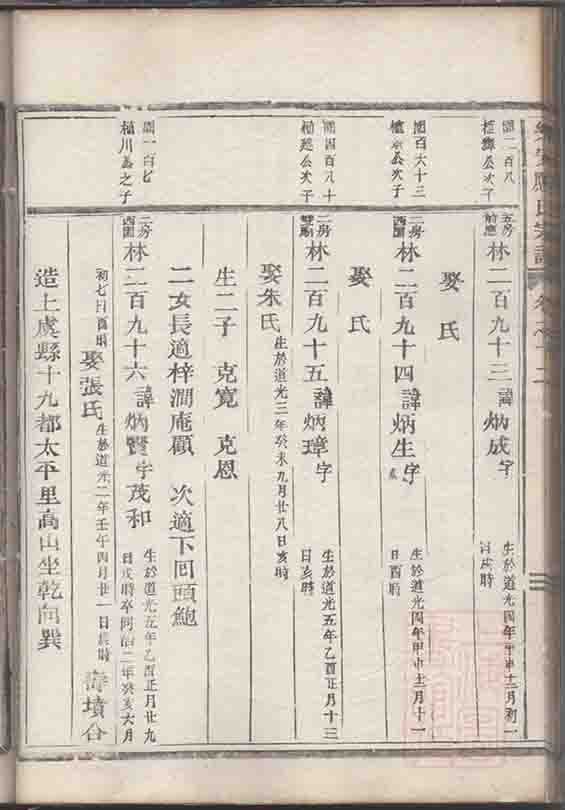 五房
林二百九十三諱炳成字
生於道光四年甲申十二月初一
日戌時
娶氏
二房
西園
林二百九十四諱炳生字
生於道光四年甲申十二月十一
日酉時
娶氏
二房
林二百九十五諱炳璋字
生於道光五年乙酉正月十三
日亥時
娶朱氏
生於道光三年癸未九月廿八日亥時
生二子 克寬 克恩
二女長適梓澗庵顧 次適下囘頭鮑
二房
西園
林二百九十六諱炳賢字茂和
生於道光五年乙酉正月廿九
日戌時卒同治二年癸亥六月
初七日酉時
娶張氏
生於道光二年壬午四月廿一日辰時
壽墳合
造上虞縣十九都太平里高山坐乾向巽